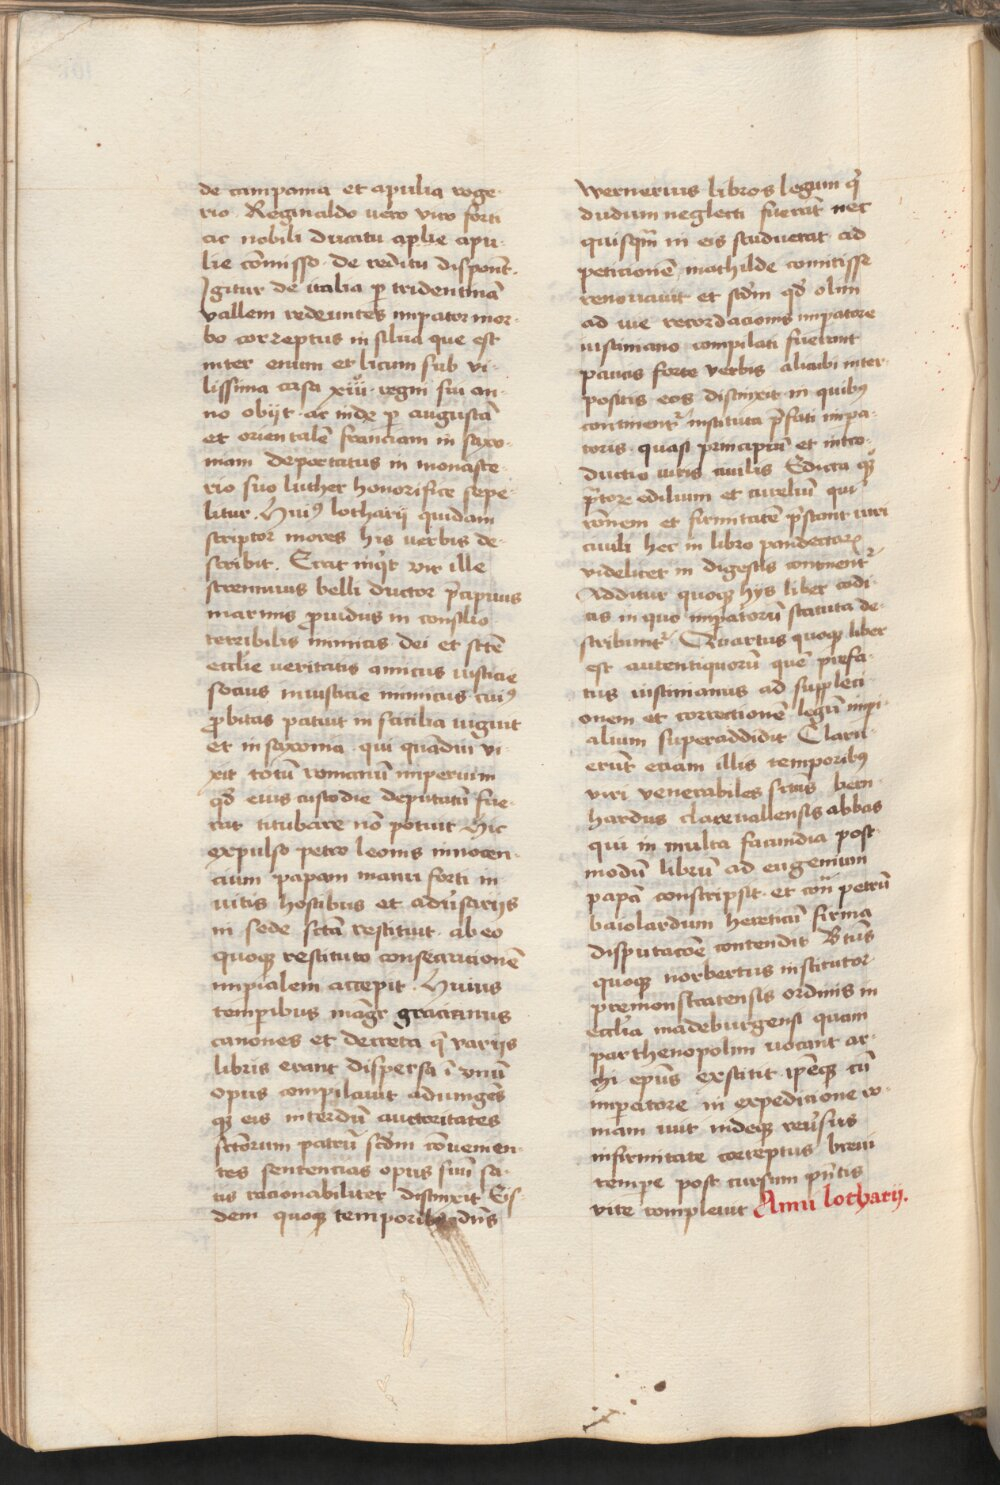 de campania et apulia roge-
rio. Reginaldo uero viro forti
ac nobili ducatu aplie apu-
lie cōmisso. de reditu disponūt.
Igitur de italia p̱ tridentinā
vallem redeuntes impator mor-
bo correptus in silua que est
inter enum et licum sub vi-
lissima casa xiiiiͦ. regni sui an-
no obijt. ac inde p̱ augustā
et orientalē franciam in saxo-
niam deportatus in monaste-
rio suo luther honorifice sepe-
litur. Huiꝰ lotharij quidam
scriptor mores his verbis de-
scribit. Erat inqͥt vir ille
strennuus belli ductor p̄cipuus
in armis ꝓuidus in consilio
terribilis inimicis dei et scē̄
eccl̄ie veritatis amicus iusticie
socius iniusticie inimicus cuiꝰ
ꝓbitas patuit in sicilia viguit
et in saxonia. qui quādiu vi-
xit totū romanū imperium
qd̄ eius custodie deputatū fue-
rat titubare nō potuit. Hic
expulso petro leonis innocen-
cium papam manu forti in-
uitis hostibus et adūsarijs
in sede sctā restituit. ab eo
quoqꝫ restituto consecracionē
impialem accepit. Huius
tempibus magr̄ gracianus
canones et decreta q̄ varijs
libris erant dispersa ī vnū
opus compilauit adiungēs
qꝫ eis interdū auctoritates
sctōrum patrū scd̄m cōuenien-
tes sentencias opus suū sa-
tis racionabiliter distinxit. Eis-
dem quoqꝫ temporibꝫ dn̄s
wernerius libros legum q̄
dudum neglecti fuerāt nec
quisqm̄ in eis studuerat ad
peticionē mathilde comitisse
renouauit et scd̄m qd̄ olim
ad iue recordacionis impatore
iustiniano compilati fuerunt
paucis forte verbis alicubi inter-
positis eos distinxit in quibꝰ
continentʳ instituta p̄fati impa-
toris. quasi principiū et intro-
ductio iuris ciuilis Edicta qꝫ
p̄torꝫ edilium et curelium qui
rōnem et firmitatē p̄stant iuri
ciuili hec in libro pandectarꝫ
videlicet in digestis continentʳ
Additur quoqꝫ hijs liber codi-
cis in quo impatorū statuta de-
scribuntʳ. Quartus quoqꝫ liber
est autentiquorū quē prefa-
tus iustinianus ad suppleci-
onem et correctionē legū impi-
alium superaddidit Claru-
erūt etiam illis temporibꝰ
viri venerabiles sctūs bern-
hardus clareuallensis abbas
qui in multa facundia post-
modū librū ad eugenium
papā conscripsit. et con̄ petrū
baiolardum hereticū firma
disputacōe contendit Btūs
quoqꝫ norbertus institutor
premonstratensis ordinis in
eccl̄ia madeburgensi quam
parthenopolim vocant ar-
chi ep̄us exstitit ip̄eqꝫ cū
imperatore in expedicione ro-
mam iuit indeqꝫ reūsus
infirmitate correptus breui
tempe post cursum pn̄tis
vite compleuit Anni lotharij.